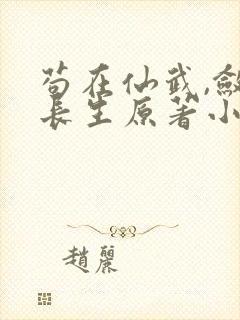 苟在仙武,斂
長生原著小
趙麗